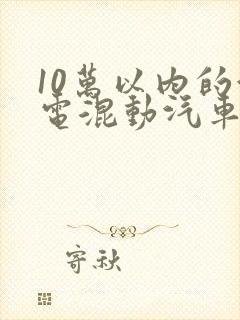 10萬以内的
電混動汽車
寄秋